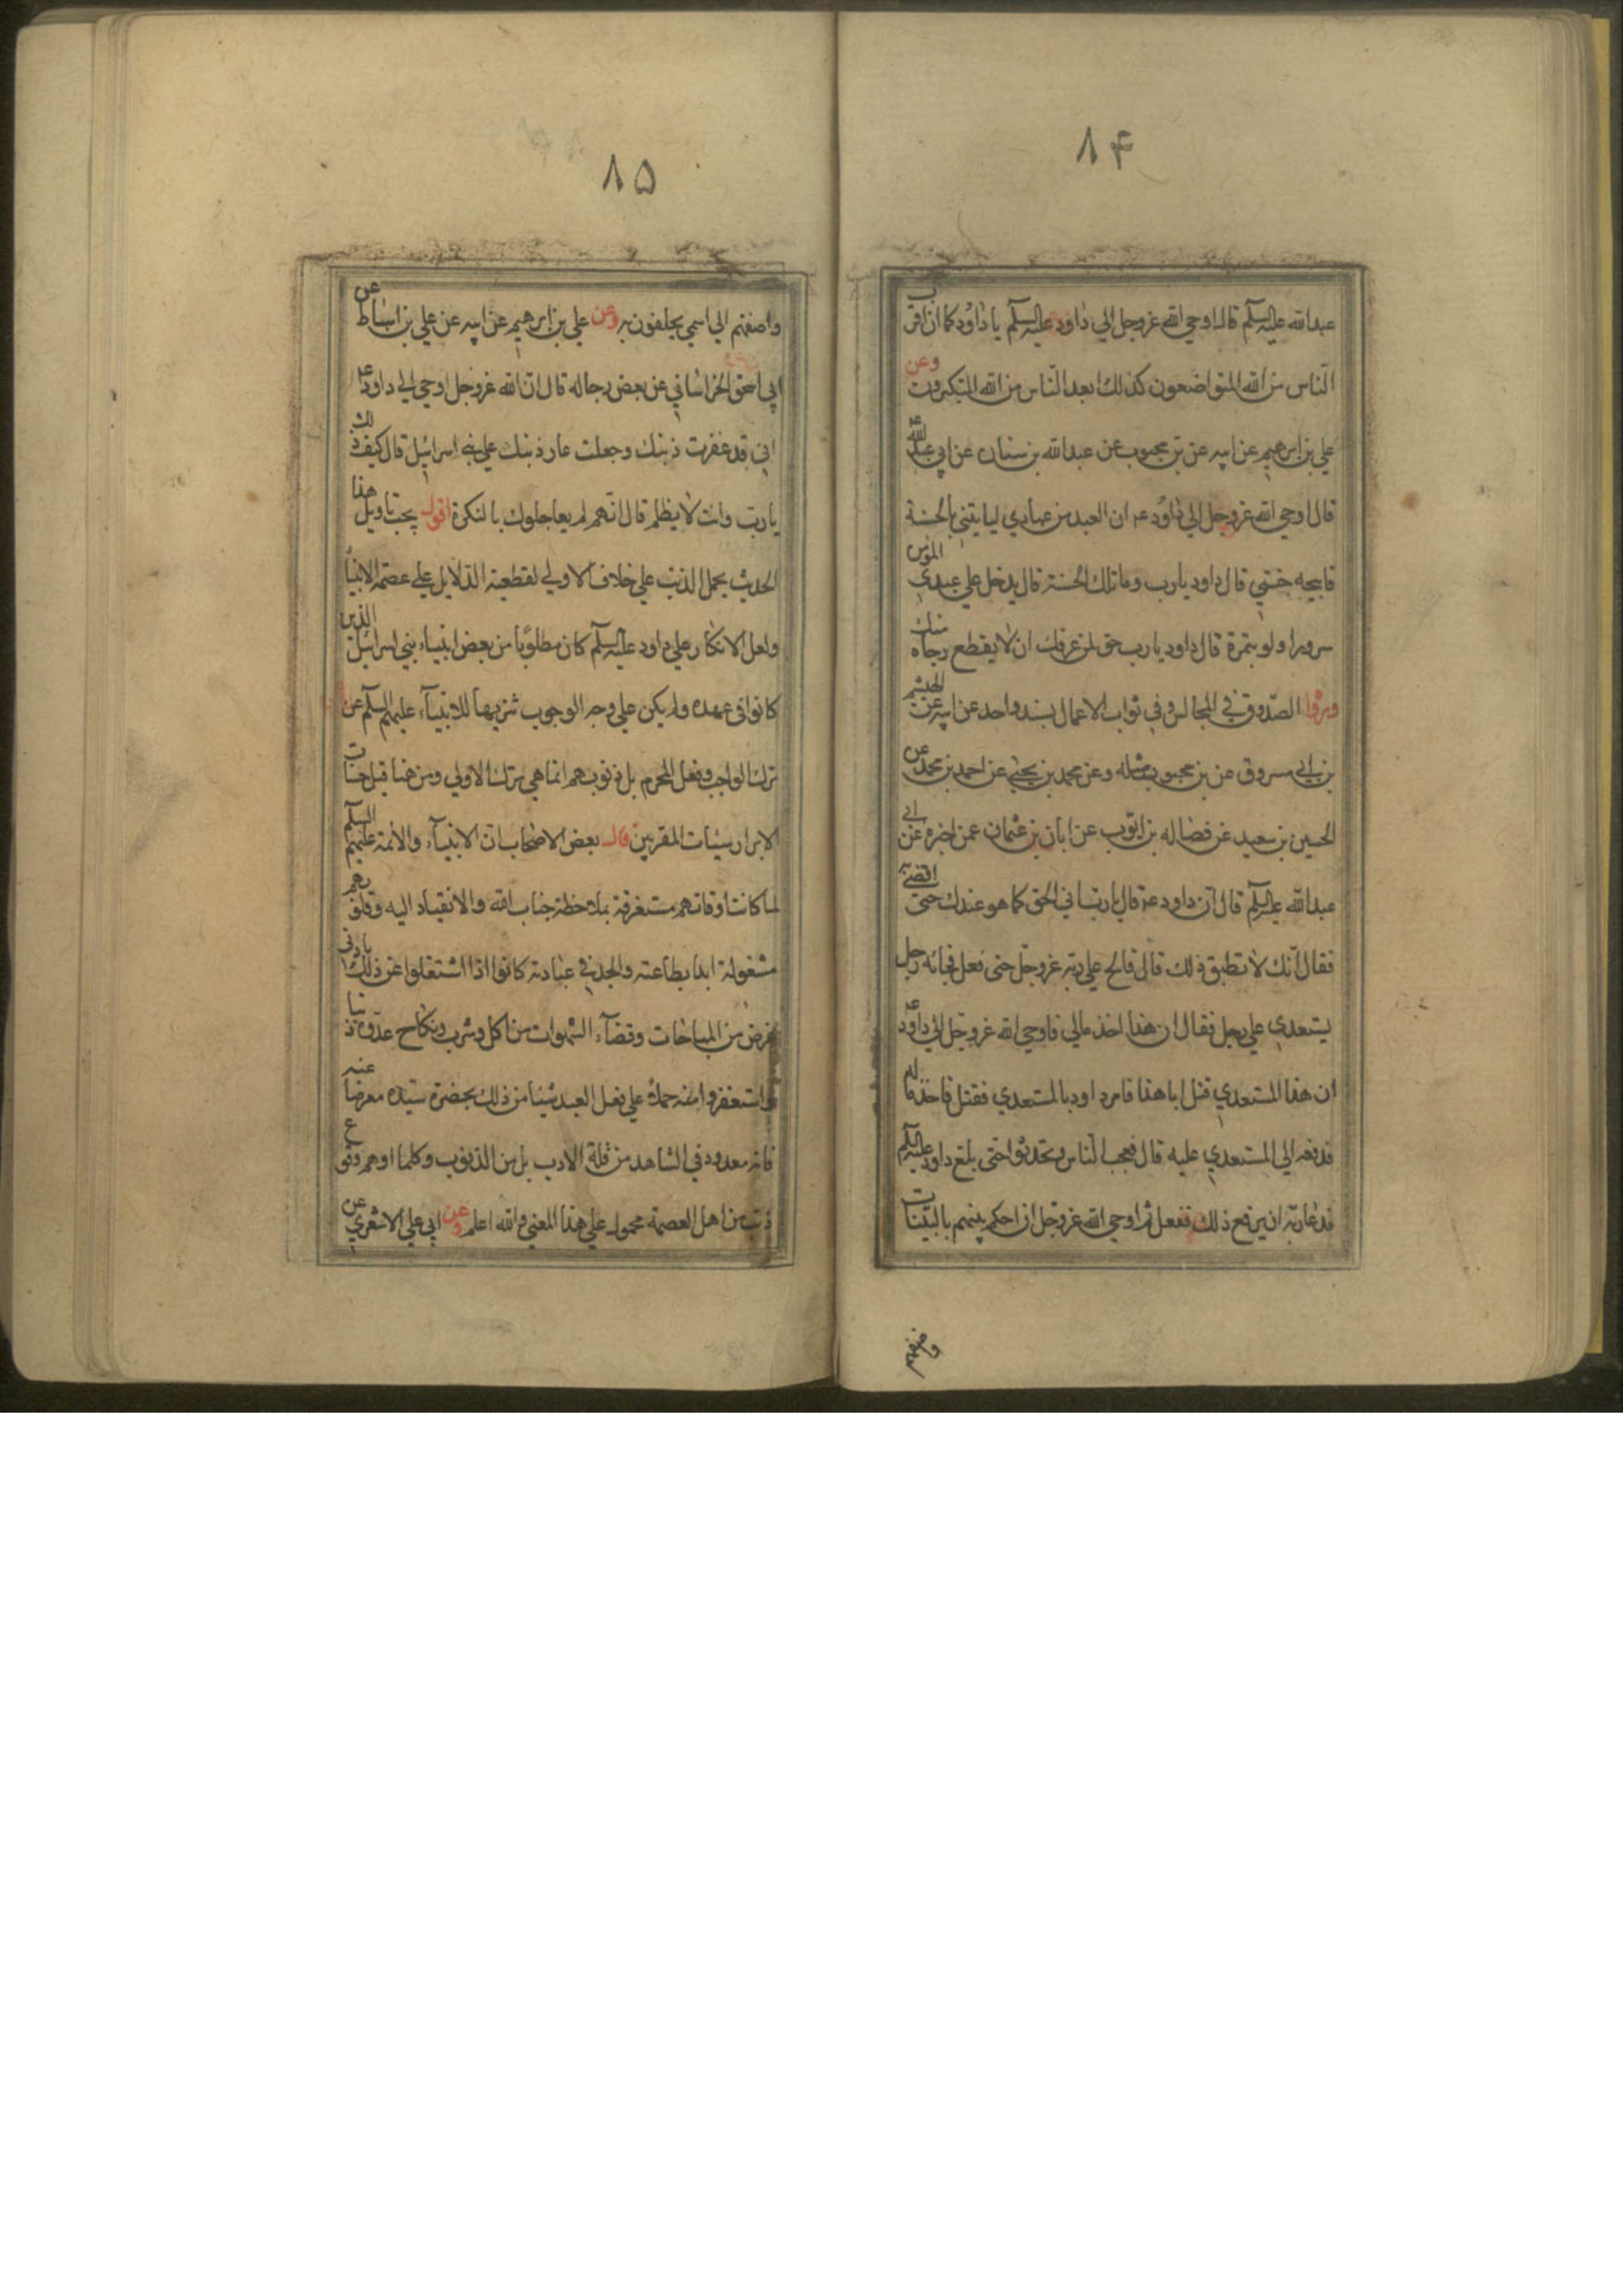 ۸۴
عبدالله عليه السلم قال اوحي الله عزوجل الي داود عليه السلم يا داود كما ان اقرب
الناس من الله المتواضعون كذلك ابعد الناس من الله المتكبرون وعن
علي بن ابرهيم عن ابيه عن بن محبوب عن عبدالله بن سنان عن ابي عبدالله ع
قال اوحي الله عزوجل الي داود ع ان العبد من عبادي ليأتيني بالحسنة
فابيحه جنتي قال داود يا رب وما تلك الحسنة قال يدخل علي عبدي المؤمن
سرورا ولو بتمرة قال داود يا رب حق لمن عرفك ان لا يقطع رجاه منك
وروا الصدوق في المجالس وفي ثواب الاعمال بسند واحد عن ابيه عن الهيثم
بن ابي مسروق عن بن محبوب مثله وعن محمد بن يحيي عن احمد بن محمد عن
الحسين بن سعيد عن فضاله بن ايوب عن ابان بن عثمان عمن اخبره عن ابي
عبدالله عليه السلم قال ان داود ع قال يا رب ارني الحق كما هو عندك حتي اقضي به
فقال انك لا تطيق ذلك قال فالح علي ربه عزوجل حتي فعل فجائه رجل
يستعدي علي رجل فقال ان هذا اخذ مالي فاوحي الله عزوجل الي داود ع
ان هذا المستعدي قتل ابا هذا فامر داود بالمستعدي فقتل فاخذ ماله
فدفعه الي المستعدي عليه قال فعجب الناس وتحدثوا حتي بلغ داود عليه السلم
فدعا ربه ان يرفع ذلك ففعل ثم اوحي الله عزوجل ان احكم بينهم بالبينات
واضفهم
۸۵
واضفهم الي اسمي يحلفون به وعن علي بن ابرهيم عن ابيه عن علي بن اسباط عن
ابي اسحق الخراساني عن بعض رجاله قال ان الله عزوجل اوحي الي داود ع
اني قد غفرت ذنبك وجعلت عار ذنبك علي بني اسرائيل قال كيف ذلك
يا رب وانت لا تظلم قال انهم لم يعاجلوك بالنكرة اقول يجب تاويل هذا
الحديث بحمل الذنب علي خلاف الاولي لقطعية الدلايل علي عصمة الانبيا
ولعل الانكار علي داود عليه السلم كان مطلوبا من بعض انبياء بني اسرائيل الذين
كانوا في عهده ولم يكن علي وجه الوجوب تنزيها للانبيآء عليهم السلم عن
ترك الواجب وفعل المحرم بل ذنوبهم انما هي ترك الاولي ومن هنا قيل حسنات
الابرار سيئات المقربين قال بعض الاصحاب ان الانبيآء والائمة عليهم السلم
لما كانت اوقاتهم مستغرقة بملاحظة جناب الله والانقياد اليه وقلوبهم
مشغولة ابدا بطاعته والجد في عبادته كانوا اذا اشتغلوا عن ذلك بادني
غرض من المباحات وقضآء الشهوات من اكل وشرب ونكاح عدوه ذنبا
واستغفروا منه حملا علي فعل العبد شيئا من ذلك بحضرة سيده معرضا عنه
فانه معدود في الشاهد من قلة الادب بل من الذنوب وكلما اوهم وقوع
ذنب من اهل العصمة محمول علي هذا المعني والله اعلم وعن ابي علي الاشعري عن